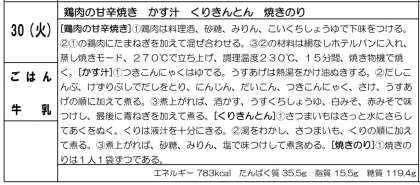 鶏肉の甘辛焼き かす汁 くりきんとん 焼きのり
30(火)
ごはん
牛乳
[鶏肉の甘辛焼き]①鶏肉は料理酒、砂糖、みりん、こいくちしょうゆで下味をつける。
②①の鶏肉にたまねぎを加えて混ぜ合わせる。③②の材料は綱なしホテルパンに入れ、
蒸し焼きモード、270℃で立ち上げ、調理温度230℃、15分間、焼き物機で焼
く。[かす汁]①つきこんにゃくはゆでる。うすあげは熱湯をかけ油ぬきする。②だしこ
んぶ、けずりぶしでだしをとり、にんじん、だいこん、つきこんにゃく、さけ、うすあ
げの順に加えて煮る。③煮上がれば、酒かす、うすくちしょうゆ、白みそ、赤みそで味
つけし、最後に青ねぎを加えて煮る。[くりきんとん]①さつまいもはさっと水にさらし
てあくをぬく。くりは液汁を十分にきる。②湯をわかし、さつまいも、くりの順に加え
て煮る。③煮上がれば、砂糖、みりん、塩で味つけして煮含める。[焼きのり]①焼きの
りは1人1袋ずつである。
エネルギー 783kcal たんぱく質 35.5g 脂質 15.5g 糖質 119.4g